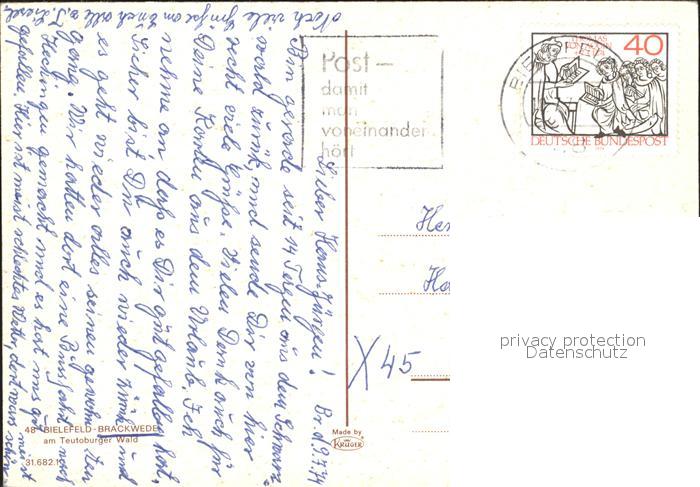 Noch viele Grüße an Euch alle
Lieber Hans-Jürgen! Br. d. 9.7.74
Bin gerade seit 14 Tagen aus dem Schwarz
wald zurück, und sende Dir von hier
recht viele Grüße. Vielen Dank auch für
Deine Karte aus dem Urlaub. Ich
nehme an daß es Dir gut gefallen hat.
Sicher bist Du auch wieder zurück und
es geht wieder alles seinen gewohnten
Gang. Wir hatten dort eine Busfahrt nach
Hechingen gemacht und es hat uns gut
gefallen. Hier ist meist schlechtes Wetter, dort war schön
Post –
damit
man
voneinander
hört
THOMAS
40
DEUTSCHE BUNDESPOST
BIELEFELD
X 45
privacy protection
Datenschutz
48 BIELEFELD-BRACKWEDE
am Teutoburger Wald
31.682.1
Made by
KRÜGER